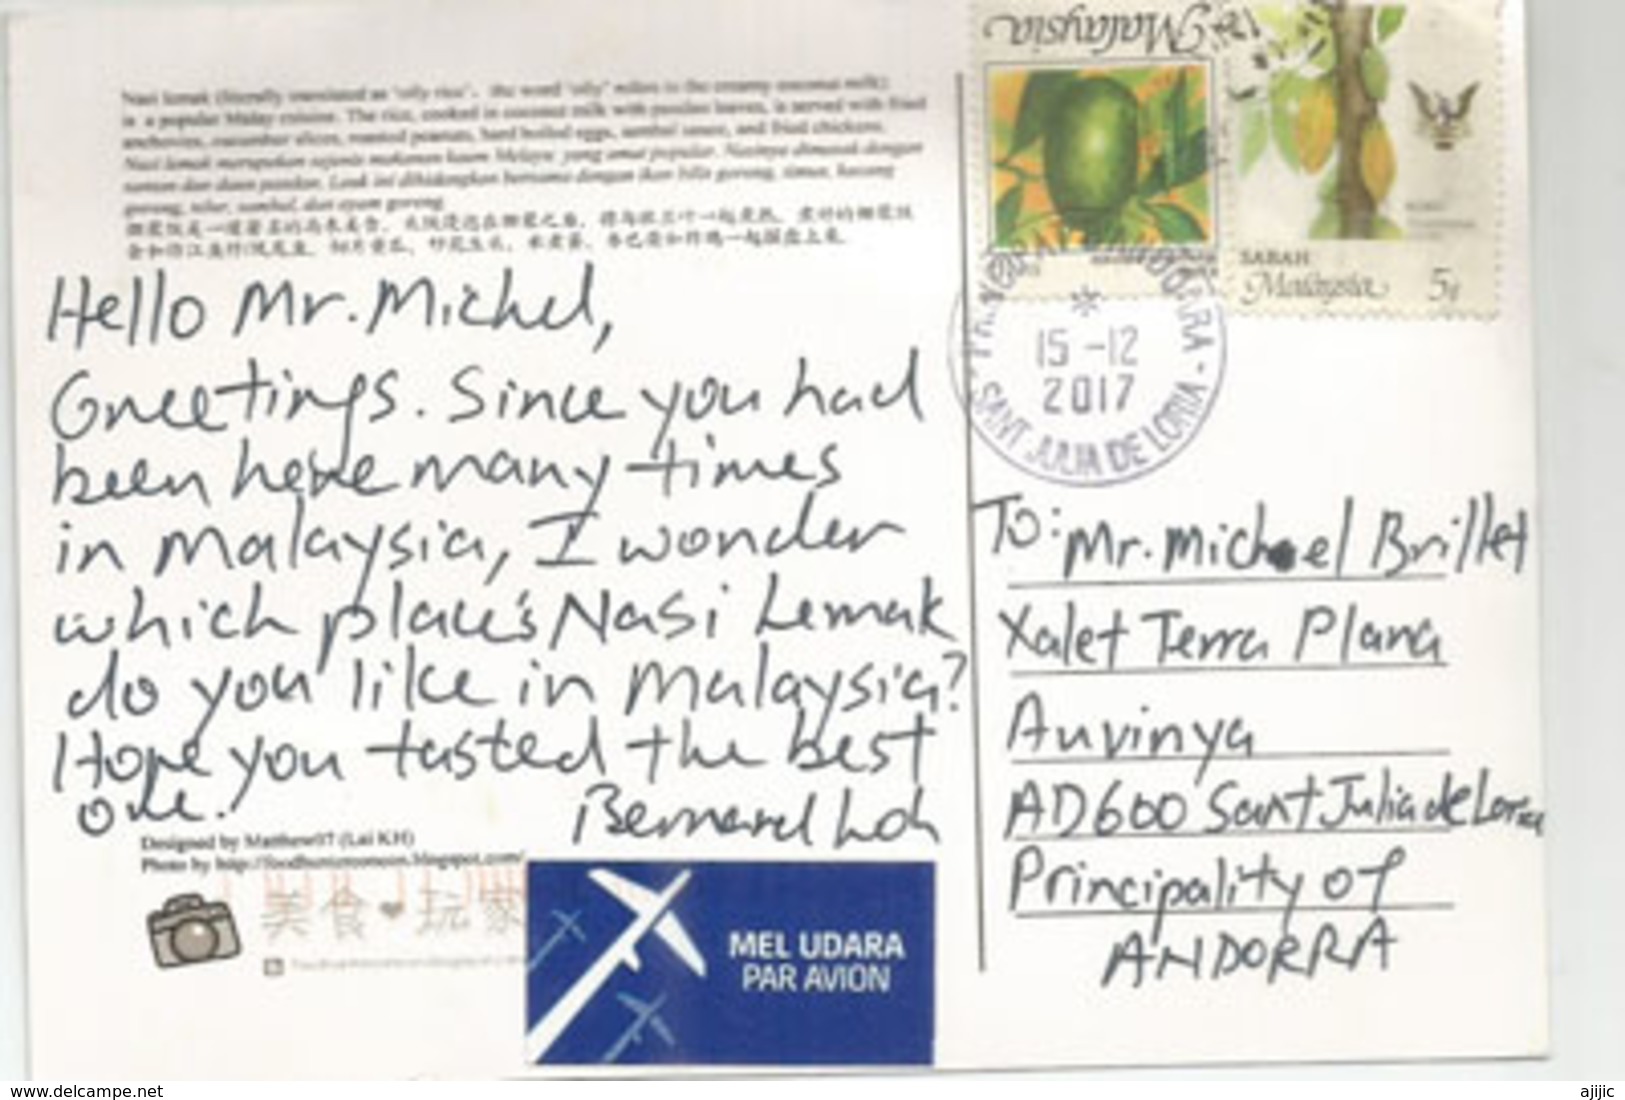 Nasi lemak (literally translated as 'oily rice' - the word 'oily' refers to the creamy coconut milk)
is a popular Malay cuisine. The rice, cooked in coconut milk with pandan leaves, is served with fried
anchovies, cucumber slices, roasted peanuts, hard boiled eggs, sambal sauce, and fried chickens.
Nasi lemak merupakan sejenis makanan kaum Melayu yang amat popular. Nasinya dimasak dengan
santan dan daun pandan. Lauk ini dihidangkan bersama dengan ikan bilis goreng, timun, kacang
goreng, telur, sambal, dan ayam goreng
Hello Mr. Michel,
Greetings. Since you had
been here many times
in Malaysia, I wonder
which place's Nasi Lemak
do you like in Malaysia?
Hope you tasted the best
one.
Bernard Loh
Designed by Matthew07 (Lai KH)
美食❤玩家
MEL UDARA
PAR AVION
Malaysia
SABAH
Malaysia 5¢
15-12
2017
SANT JULIA DE LORIA
To: Mr. Michael Brillet
Xalet Terra Plana
Auvinya
AD600 Sant Julia de Loria
Principality of
ANDORRA
www.delcampe.net
ajijic